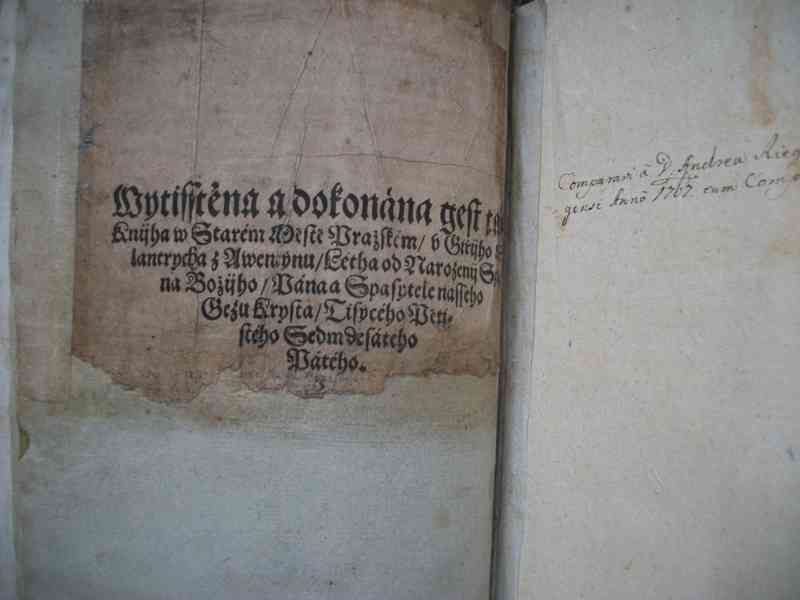 Wytisstěna a dokonána gest
Knijha w Starém Městě Pražském / v Giřijho
lantrycha z Awentynu / Létha od Narozenij Sy
na Božijho / Pána a Spasytele nasseho
Gežu Krysta / Tisycého Pěti-
stého Sedmdesátého
Pátého.
Comparavi â D. Andrea
gensi Annô 1767 cum